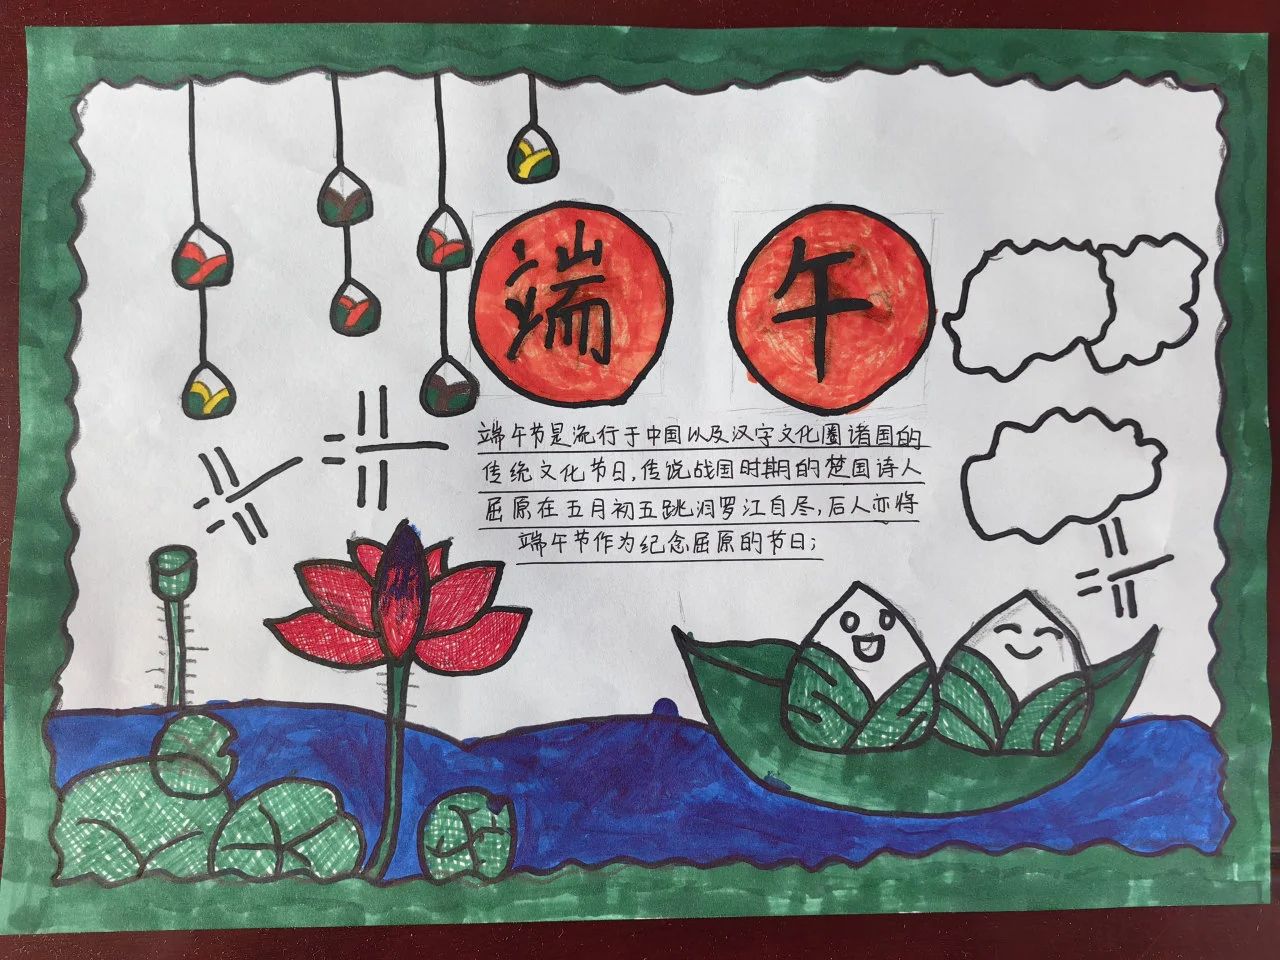 端午
端午节是流行于中国以及汉字文化圈诸国的
传统文化节日,传说战国时期的楚国诗人
屈原在五月初五跳汨罗江自尽,后人亦将
端午节作为纪念屈原的节日;